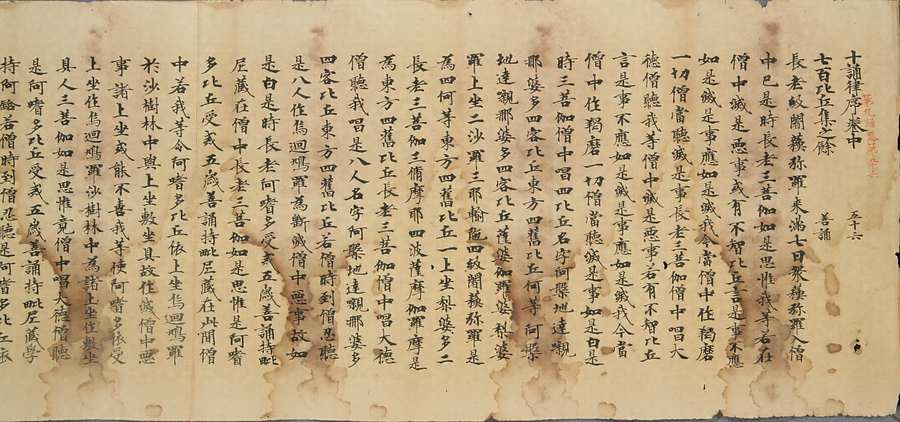 十誦律序卷中 五十六
七百比丘集之餘 善誦
長老級闍蘓弥羅來滿七日眾蘓弥羅入僧
中已是時長老三菩伽如是思惟我等若在
僧中滅是悪事或有不智比丘言是事不應
如是滅是事應如是滅我今當僧中作羯磨
一切僧當聽滅是事長老三菩伽僧中唱大
德僧聽我等僧中滅是悪事若有不智比丘
言是事不應如是滅是事應如是滅我今當
僧中作羯磨一切僧當聽滅是事如是白是
時三菩伽僧中唱四比丘名字阿槃地達嚫
那婆多四客比丘東方四舊比丘何等阿槃
地達嚫那婆多四客比丘薩婆伽羅婆梨婆
羅上坐二沙羅三耶輸陁四級闍蘓弥羅是
為四何等東方四舊比丘一上坐梨婆多二
長老三菩伽三脩摩耶四波薩摩伽羅摩是
為東方四舊比丘長老三菩伽僧中唱大德
僧聽我唱是八人名字阿槃地達嚫那婆多
四客比丘東方四舊比丘若僧時到僧忍聽
是八人作烏迴鳩羅為斷滅僧中悪事故如
是白是時長老阿嗜多受戒五歲善誦持毗
尼藏在僧中長老三菩伽如是思惟是阿嗜
多比丘受戒五歲善誦持毗尼藏在此閒僧
中若我等令阿嗜多比丘依上坐烏迴鳩羅
於沙樹林中與上坐敷坐具故作滅僧中悪
事諸上坐或能不喜我等使阿嗜多依受
上坐作烏迴鳩羅沙樹林中為諸上坐作敷坐
具人三菩伽如是思惟竟僧中唱大德僧聽
是阿嗜多比丘受戒五歲善誦持毗尼藏學
持阿鋡若僧時到僧忍聽是阿嗜多比丘